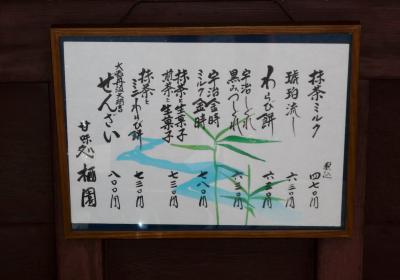 税込
抹茶ミルク 四七〇円
琥珀流し 六三〇円
わらび餅 六三〇円
宇治しぐれ
黒みつしぐれ 六三〇円
宇治金時
ミルク金時 七八〇円
抹茶と生菓子
煎茶と生菓子 七三〇円
抹茶と
ミニわらび餅 七三〇円
大納言
ぜんざい 八〇〇円
甘味処 栖園